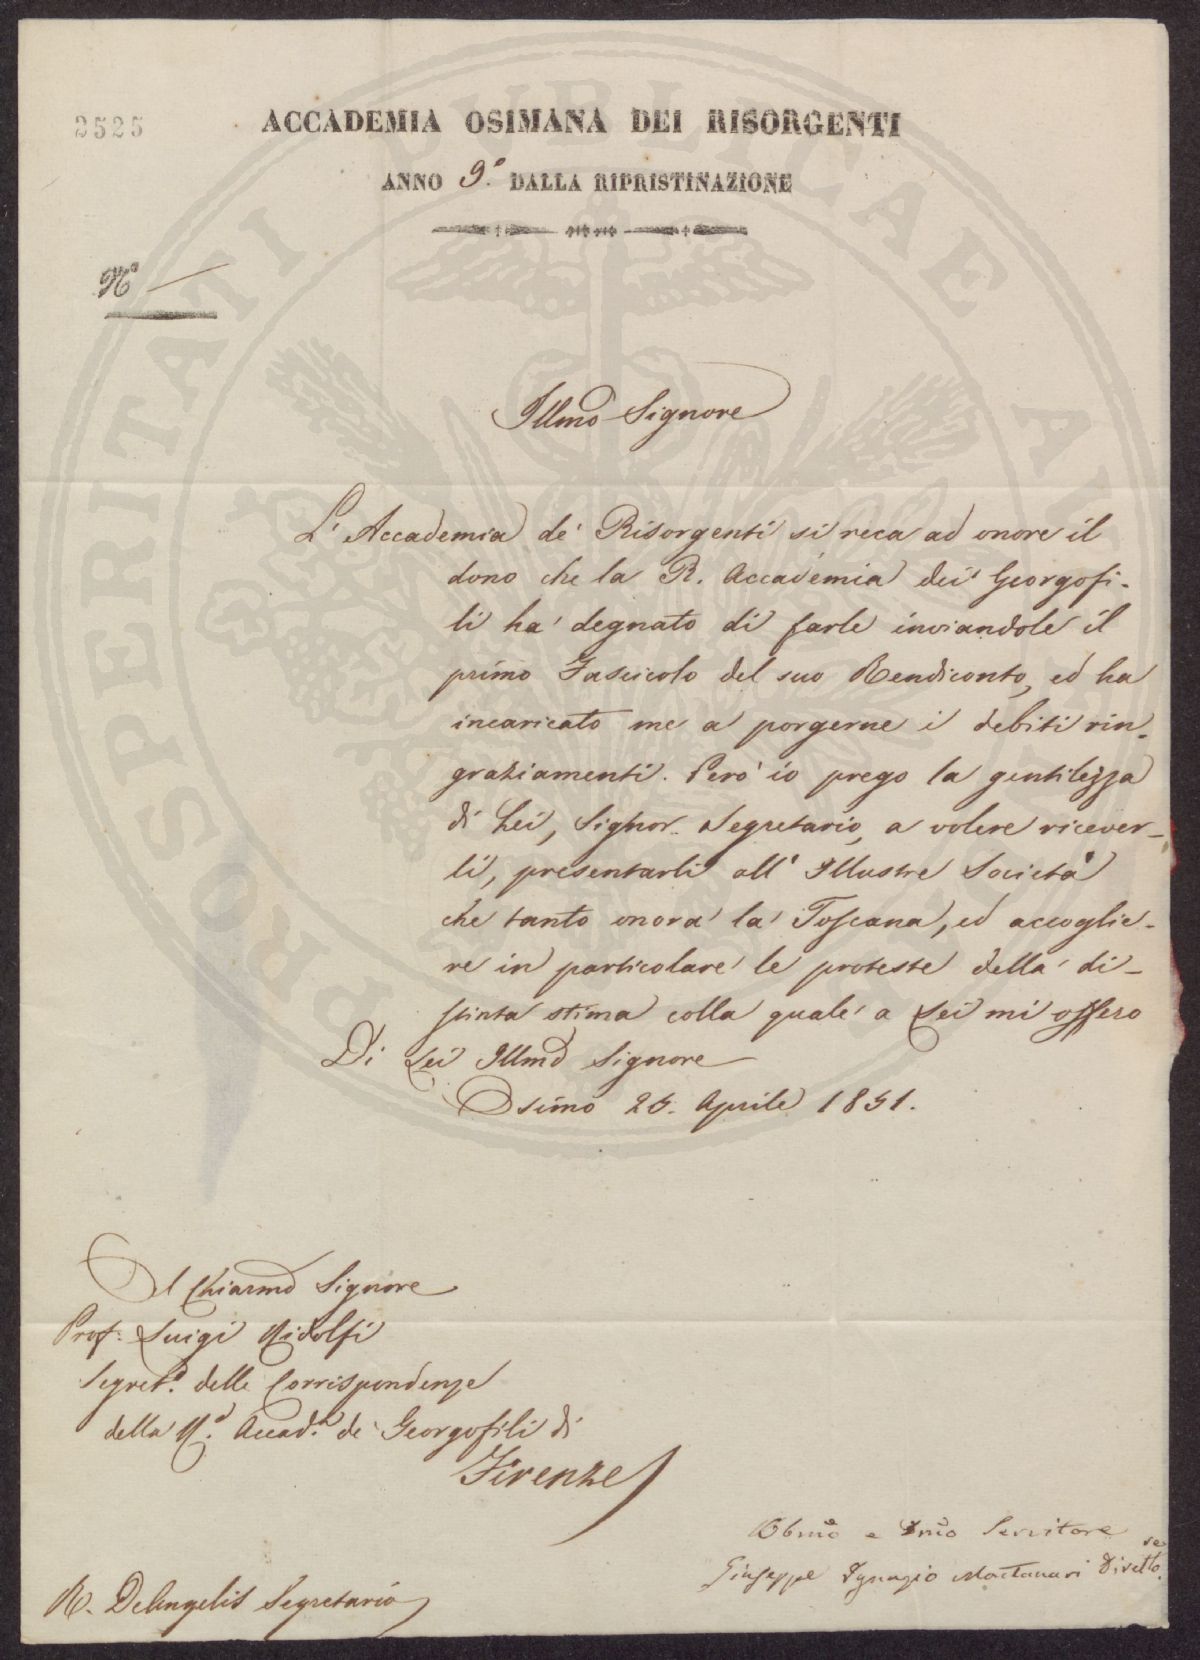 2525
ACCADEMIA OSIMANA DEI RISORGENTI
ANNO 9.° DALLA RIPRISTINAZIONE
N° —
Illmo Signore
L'Accademia de' Risorgenti si reca ad onore il
dono che la R. Accademia dei Georgofi-
li ha degnato di farle inviandole il
primo Fascicolo del suo Rendiconto, ed ha
incaricato me a porgerne i debiti rin-
graziamenti. Però io prego la gentilezza
di Lei, Signor Segretario, a volere ricever-
li, presentarli all'Illustre Società
che tanto onora la Toscana, ed accoglie-
re in particolare le proteste della di-
stinta stima colla quale a Lei mi offero
Di Lei Illmo Signore
Osimo 26. Aprile 1851.
Al Chiarmo Signore
Prof. Luigi Ridolfi
Segret.° delle Corrispondenze
della R. Accad.a de Georgofili di
Firenze
Obmo e Dmo Servitore
Giuseppe Ignazio Montanari Direttore
R. DeAngelis Segretario
PROSPERITATI PUBLICAE AU